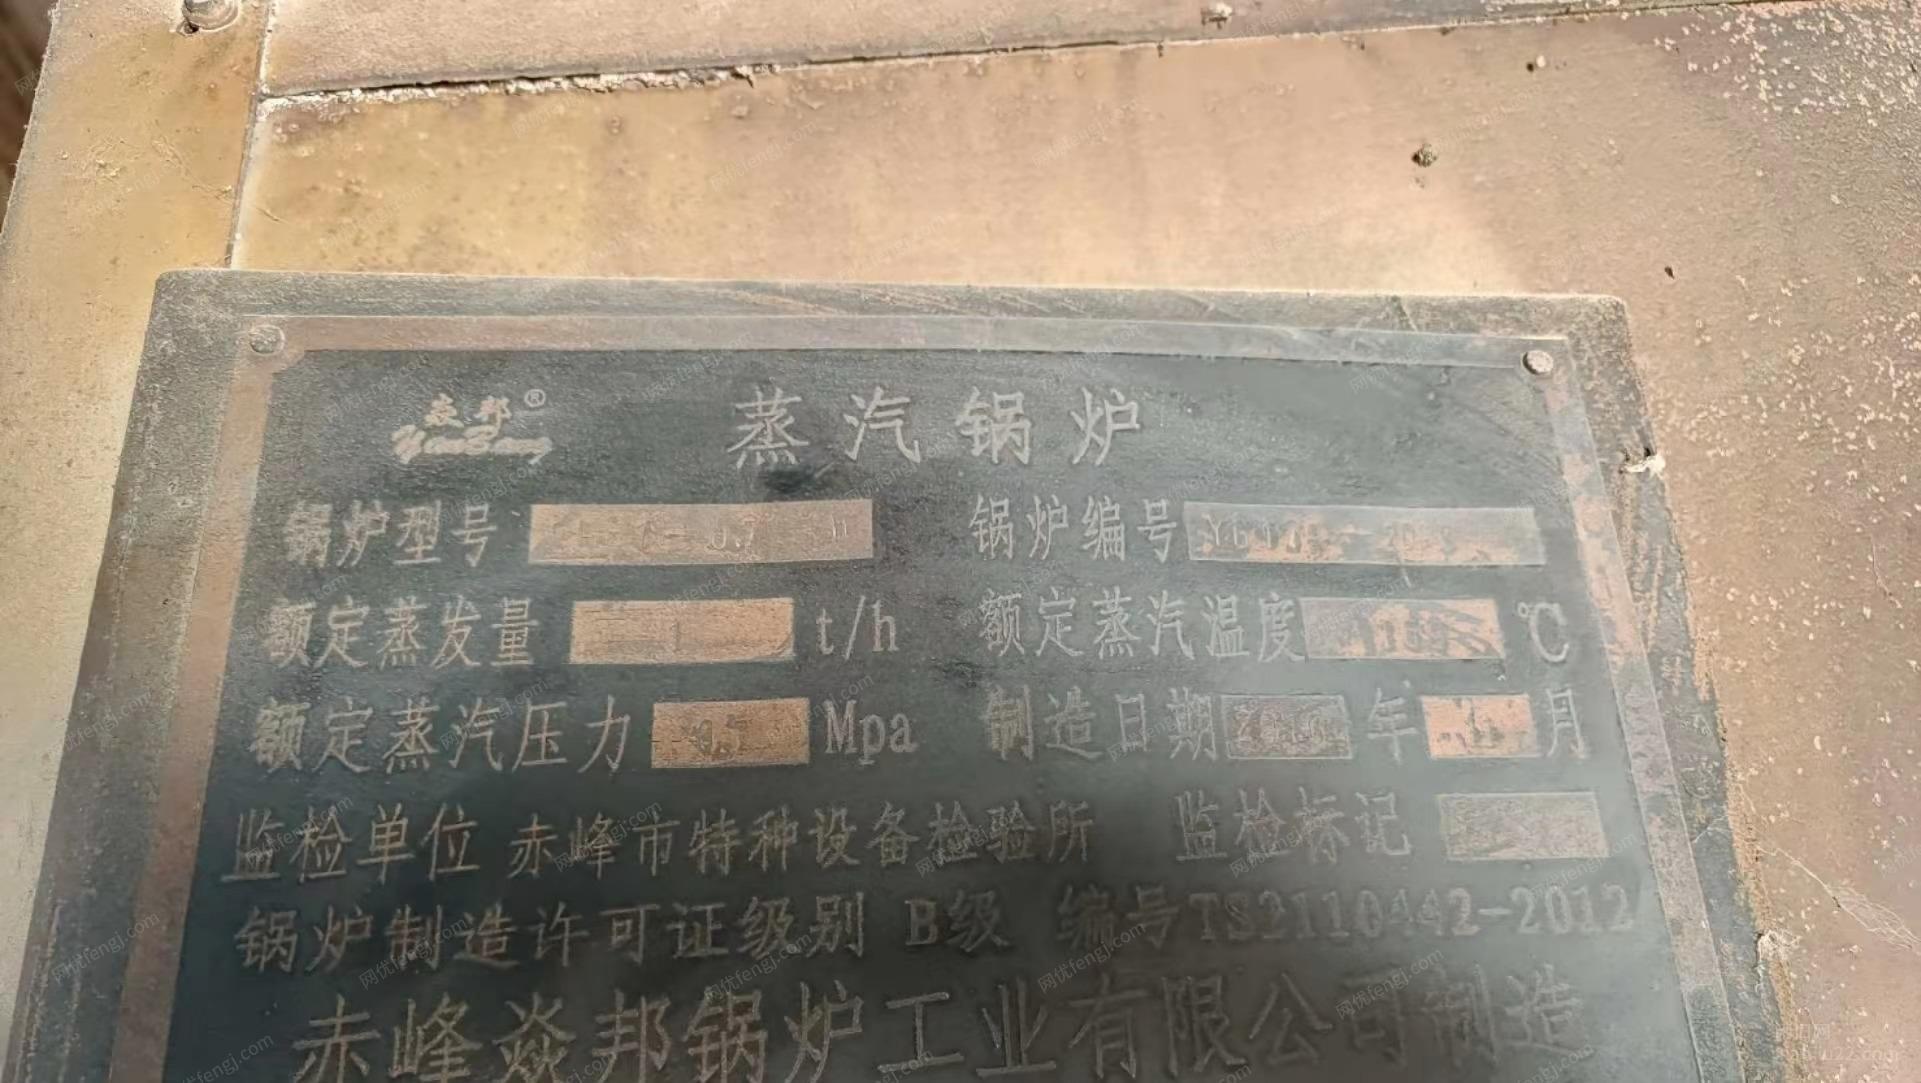 焱邦® 蒸汽锅炉
YanBang
锅炉型号 锅炉编号
额定蒸发量 1 t/h 额定蒸汽温度 ℃
额定蒸汽压力 0.7 Mpa 制造日期 年 月
监检单位 赤峰市特种设备检验所 监检标记
锅炉制造许可证级别 B级 编号TS2110442-2012
赤峰焱邦锅炉工业有限公司制造
网优fengj.com